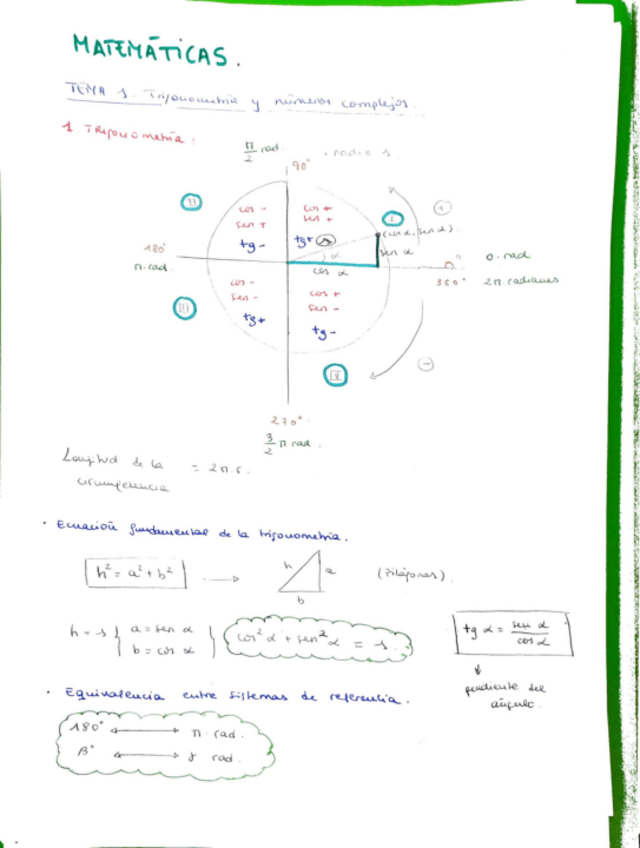 MATEMÁTICAS.
TEMA 1. Trigonometría y números complejos.
1. TRigonometría:
π/2 rad.
· radio 1.
90°
II
cos -
sen +
tg -
cos +
sen +
tg +
I
(cos α, sen α).
+
180°
π. rad
α
sen α
cos α
0. rad
360°
2π radianes
III
cos -
sen -
tg +
cos +
sen -
tg -
-
270°.
3/2 π rad.
Longitud de la circunferencia = 2π.r.
· Ecuación fundamental de la trigonometría.
h² = a² + b²
h
a
b
(Pitágoras).
h = 1 { a = sen α
b = cos α }
cos² α + sen² α = 1.
tg α = sen α / cos α
pendiente del
ángulo.
· Equivalencia entre sistemas de referencia.
180° ↔ π. rad.
β° ↔ γ rad.